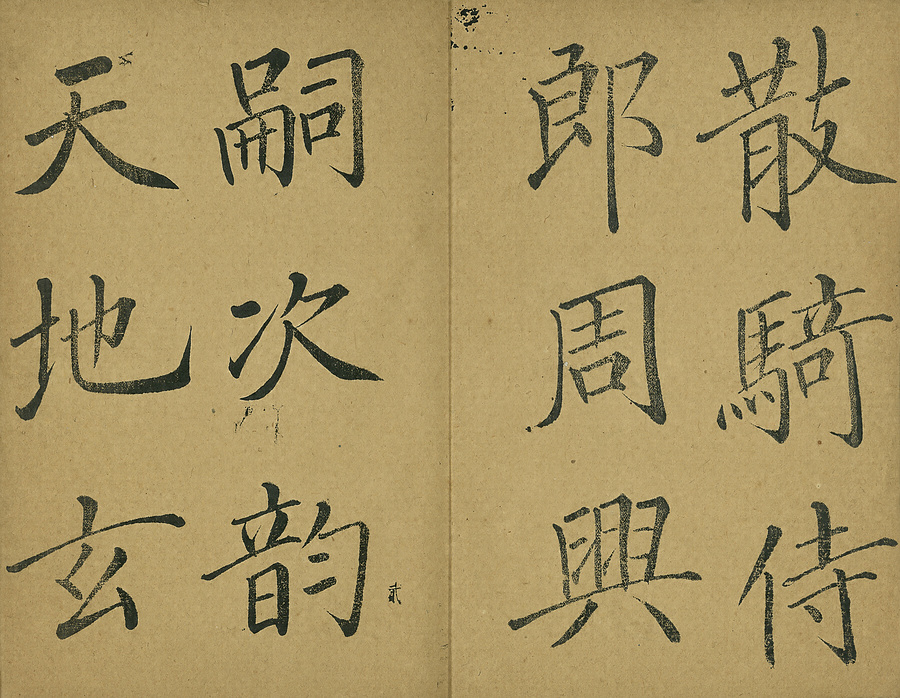 散騎侍
郎周興
嗣次韵
天地玄
貳